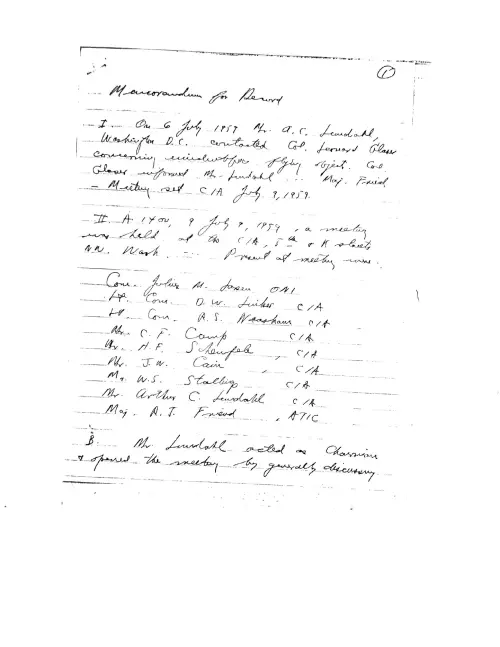 1
Memorandum for Record
I. On 6 July 1959 Mr. A.C. Lundahl,
Washington D.C. contacted Col. Leonard Glaser
concerning unidentified flying object. Col
Glaser informed Mr. Lundahl Maj. Friend
- Meeting set CIA July 9, 1959.
II. A. 1400, 9 July, 1959, a meeting
was held at the CIA, 5th & K streets
N.W. Wash. Present at meeting were:
Com. Julius M. ONI
Lt. Com. D.W. CIA
Lt. Com. R.S. CIA
Mr. C.F. Camp CIA
Mr. H.F. Scheufele, CIA
Mr. J.W. Cain, CIA
Mr. W.S. Stallings CIA
Mr Arthur C. Lundahl CIA
Maj. R.J. Friend, ATIC
B. Mr. Lundahl acted as Chairman
& opened the meeting by generally discussing